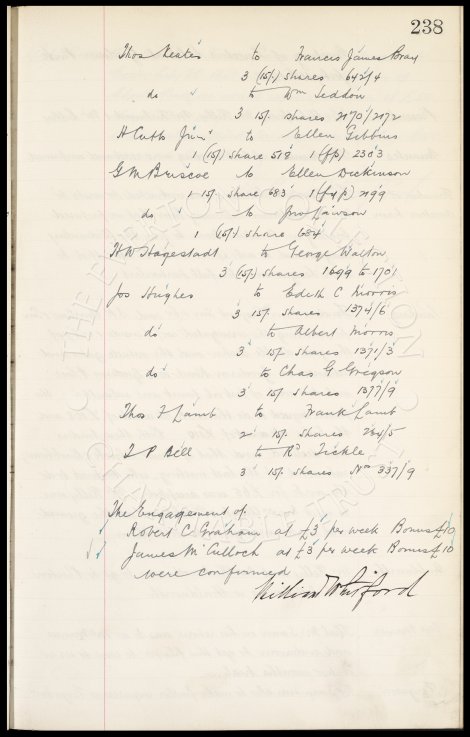 238
Thos Keates to Francis James Bray
3 (15/-) shares 642/4
do to Wm Seddon
3 15/- shares 2170/2172
A Cutts Junr to Ellen Gibbins
1 (15/-) share 518 1 (fp) 2303
G M Briscoe to Ellen Dickinson
1 15/- share 683 1 (fyp) 2199
do to Jno Lawson
1 (15/-) share 684
H W Hagestadt to George Walton
3 (15/-) shares 1699 to 1701
Jos Hughes to Edith C Morris
3 15/- shares 1374/6
do to Albert Morris
3 15/- shares 1371/3
do to Chas G Gregson
3 15/- shares 1377/9
Thos F Lamb to Frank Lamb
2 15/- shares 234/5
J P Bell to Rd Sickle
3 15/- shares Nos 337/9
The Engagement of
Robert C Graham at £3 per week Bonus £10
James McCulloch at £3 per week Bonus £10
were confirmed
William Whitford